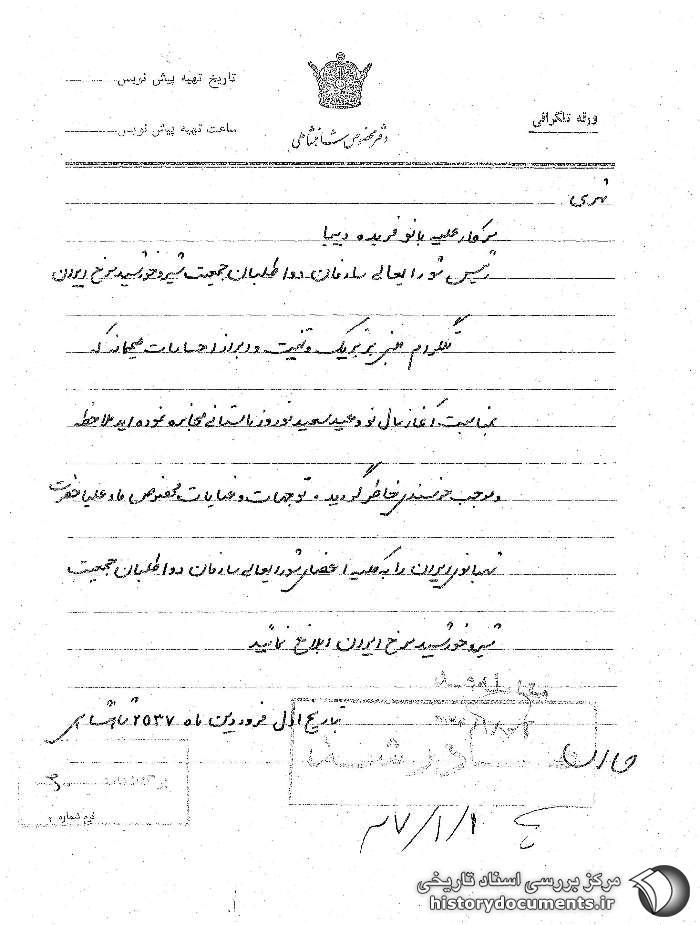 تاریخ تهیه پیش نویس
ساعت تهیه پیش نویس
دفتر مخصوص شاهنشاهی
ورقه تلگرافی
شهری
سرکار علیه بانو فریده دیبا
رئیس شورایعالی سازمان داوطلبان جمعیت شیر و خورشید سرخ ایران
تلگرام مبنی بر تبریک و تهنیت و ابراز احساسات صمیمانه که
بمناسبت آغاز سال نو و عید سعید نوروز باستانی مخابره نموده اید ملاحظه
و موجب خرسندی خاطر گردید. توجهات و عنایات مخصوص ما و علیا حضرت
شهبانوی ایران را به کلیه اعضای شورایعالی سازمان داوطلبان جمعیت
شیر و خورشید سرخ ایران ابلاغ نمائید
بتاریخ اول فروردین ماه ۲۵۳۷ شاهنشاهی
۳۷/۱/۱
فرم شماره ۲
مرکز بررسی اسناد تاریخی
historydocuments.ir